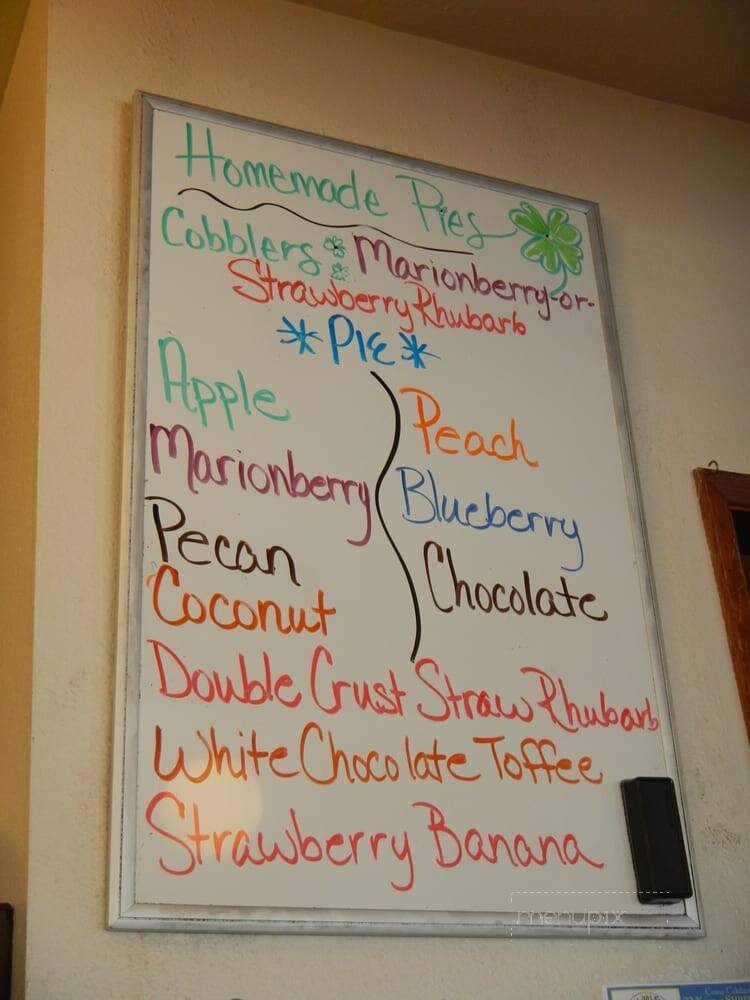 Homemade Pies
Cobblers: Marionberry-or-
Strawberry Rhubarb
*PIE*
Apple
Marionberry
Pecan
Coconut
Peach
Blueberry
Chocolate
Double Crust Straw Rhubarb
White Chocolate Toffee
Strawberry Banana
menupix